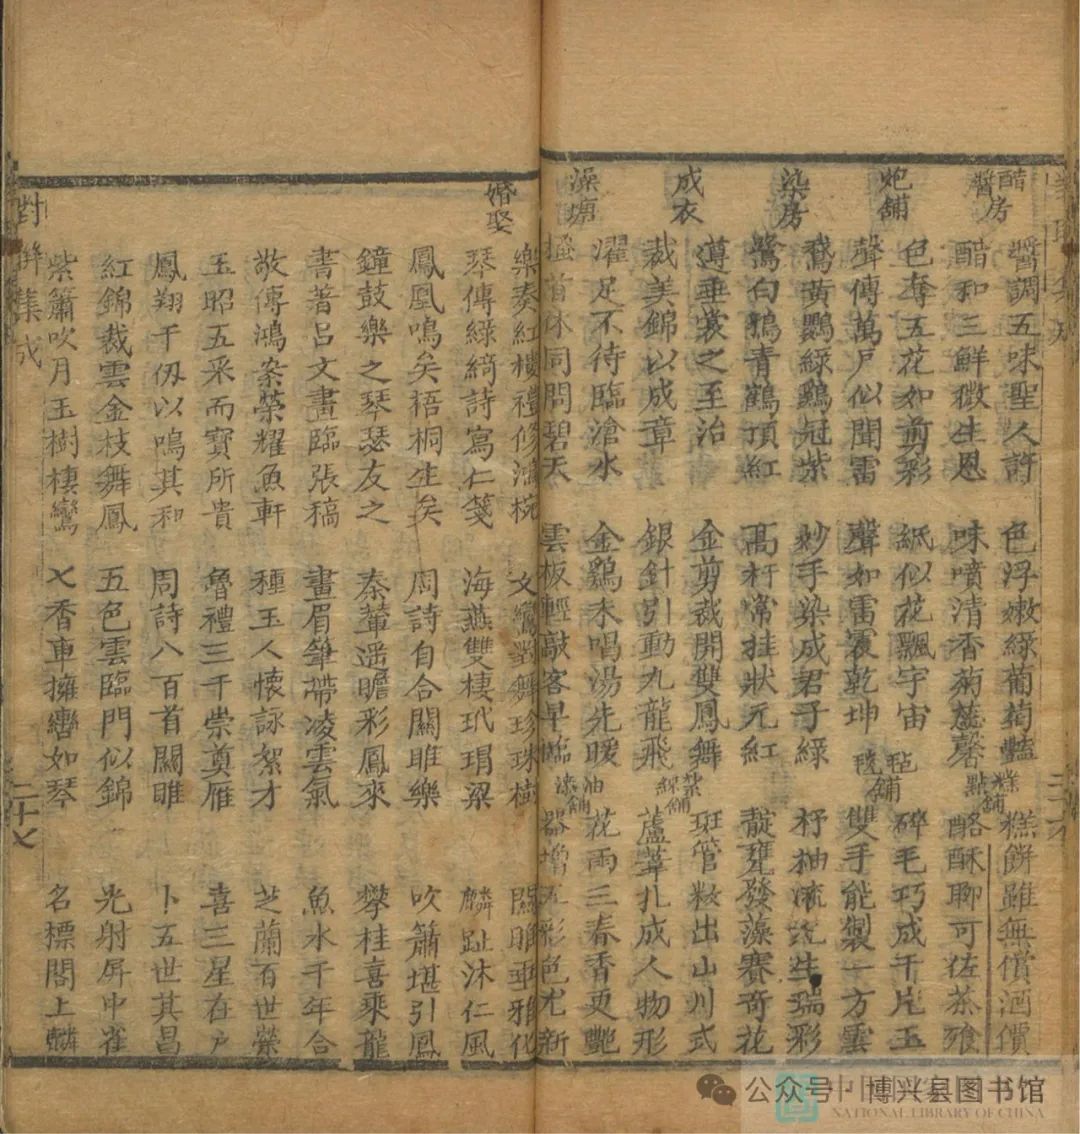 醋醬房
醬調五味聖人許　色浮嫩綠葡萄豔
醋和三鮮微生恩　味噴清香菊蕋馨
炮舖
色奪五花如剪彩　紙似花飄宇宙
聲傳萬戶似聞雷　聲如雷震乾坤
染房
鵞黃鸚綠鷄冠紫　妙手染成君子綠
鷺白鴉青鶴頂紅　高杆常挂狀元紅
成衣
遵垂裳之至治　金剪裁開雙鳳舞
裁美錦以成章　銀針引動九龍飛
澡塘
濯足不待臨滄水　金鷄未唱湯先暖
搔首休同問碧天　雲板輕敲客早臨
糕點舖
糕餅雖無價酒價
酪酥聊可佐茶飱
毡毯舖
碎毛巧成千片玉
雙手能製一方雲
杼柚流光生瑞彩
靛甕發藻賽奇花
紮綵舖
斑管粧出山川式
蘆葦扎成人物形
油漆舖
花雨三春香更艷
器增五彩色尤新
二十六
婚娶
樂奏紅樓禮修鴻椀　文鸞對舞珍珠樹　關雎垂雅化
琴傳綠綺詩寫仁箋　海燕雙棲玳瑁梁　麟趾沐仁風
鳳凰鳴矣梧桐生矣　周詩自合關雎樂　吹簫堪引鳳
鐘鼓樂之琴瑟友之　秦輦遥瞻彩鳳來　攀桂喜乘龍
書著呂文畫臨張稿　畫眉筆帶凌雲氣　魚水千年合
敬傳鴻案榮耀魚軒　種玉人懷詠絮才　芝蘭百世榮
玉昭五采而寶所貴　魯禮三千崇奠雁　喜三星在戶
鳳翔千仭以鳴其和　周詩八百首關雎　卜五世其昌
紅錦裁雲金枝舞鳳　五色雲臨門似錦　光射屏中雀
紫簫吹月玉樹棲鸞　七香車擁轡如琴　名標閣上麟
對聯集成
二十七
公众号·博兴县图书馆
中国国家图书馆
NATIONAL LIBRARY OF CHINA